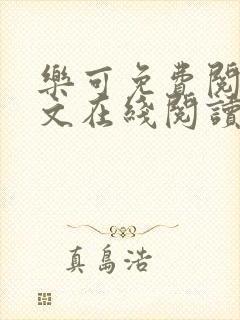 樂可免費閱
文在綫閱讀
真島浩